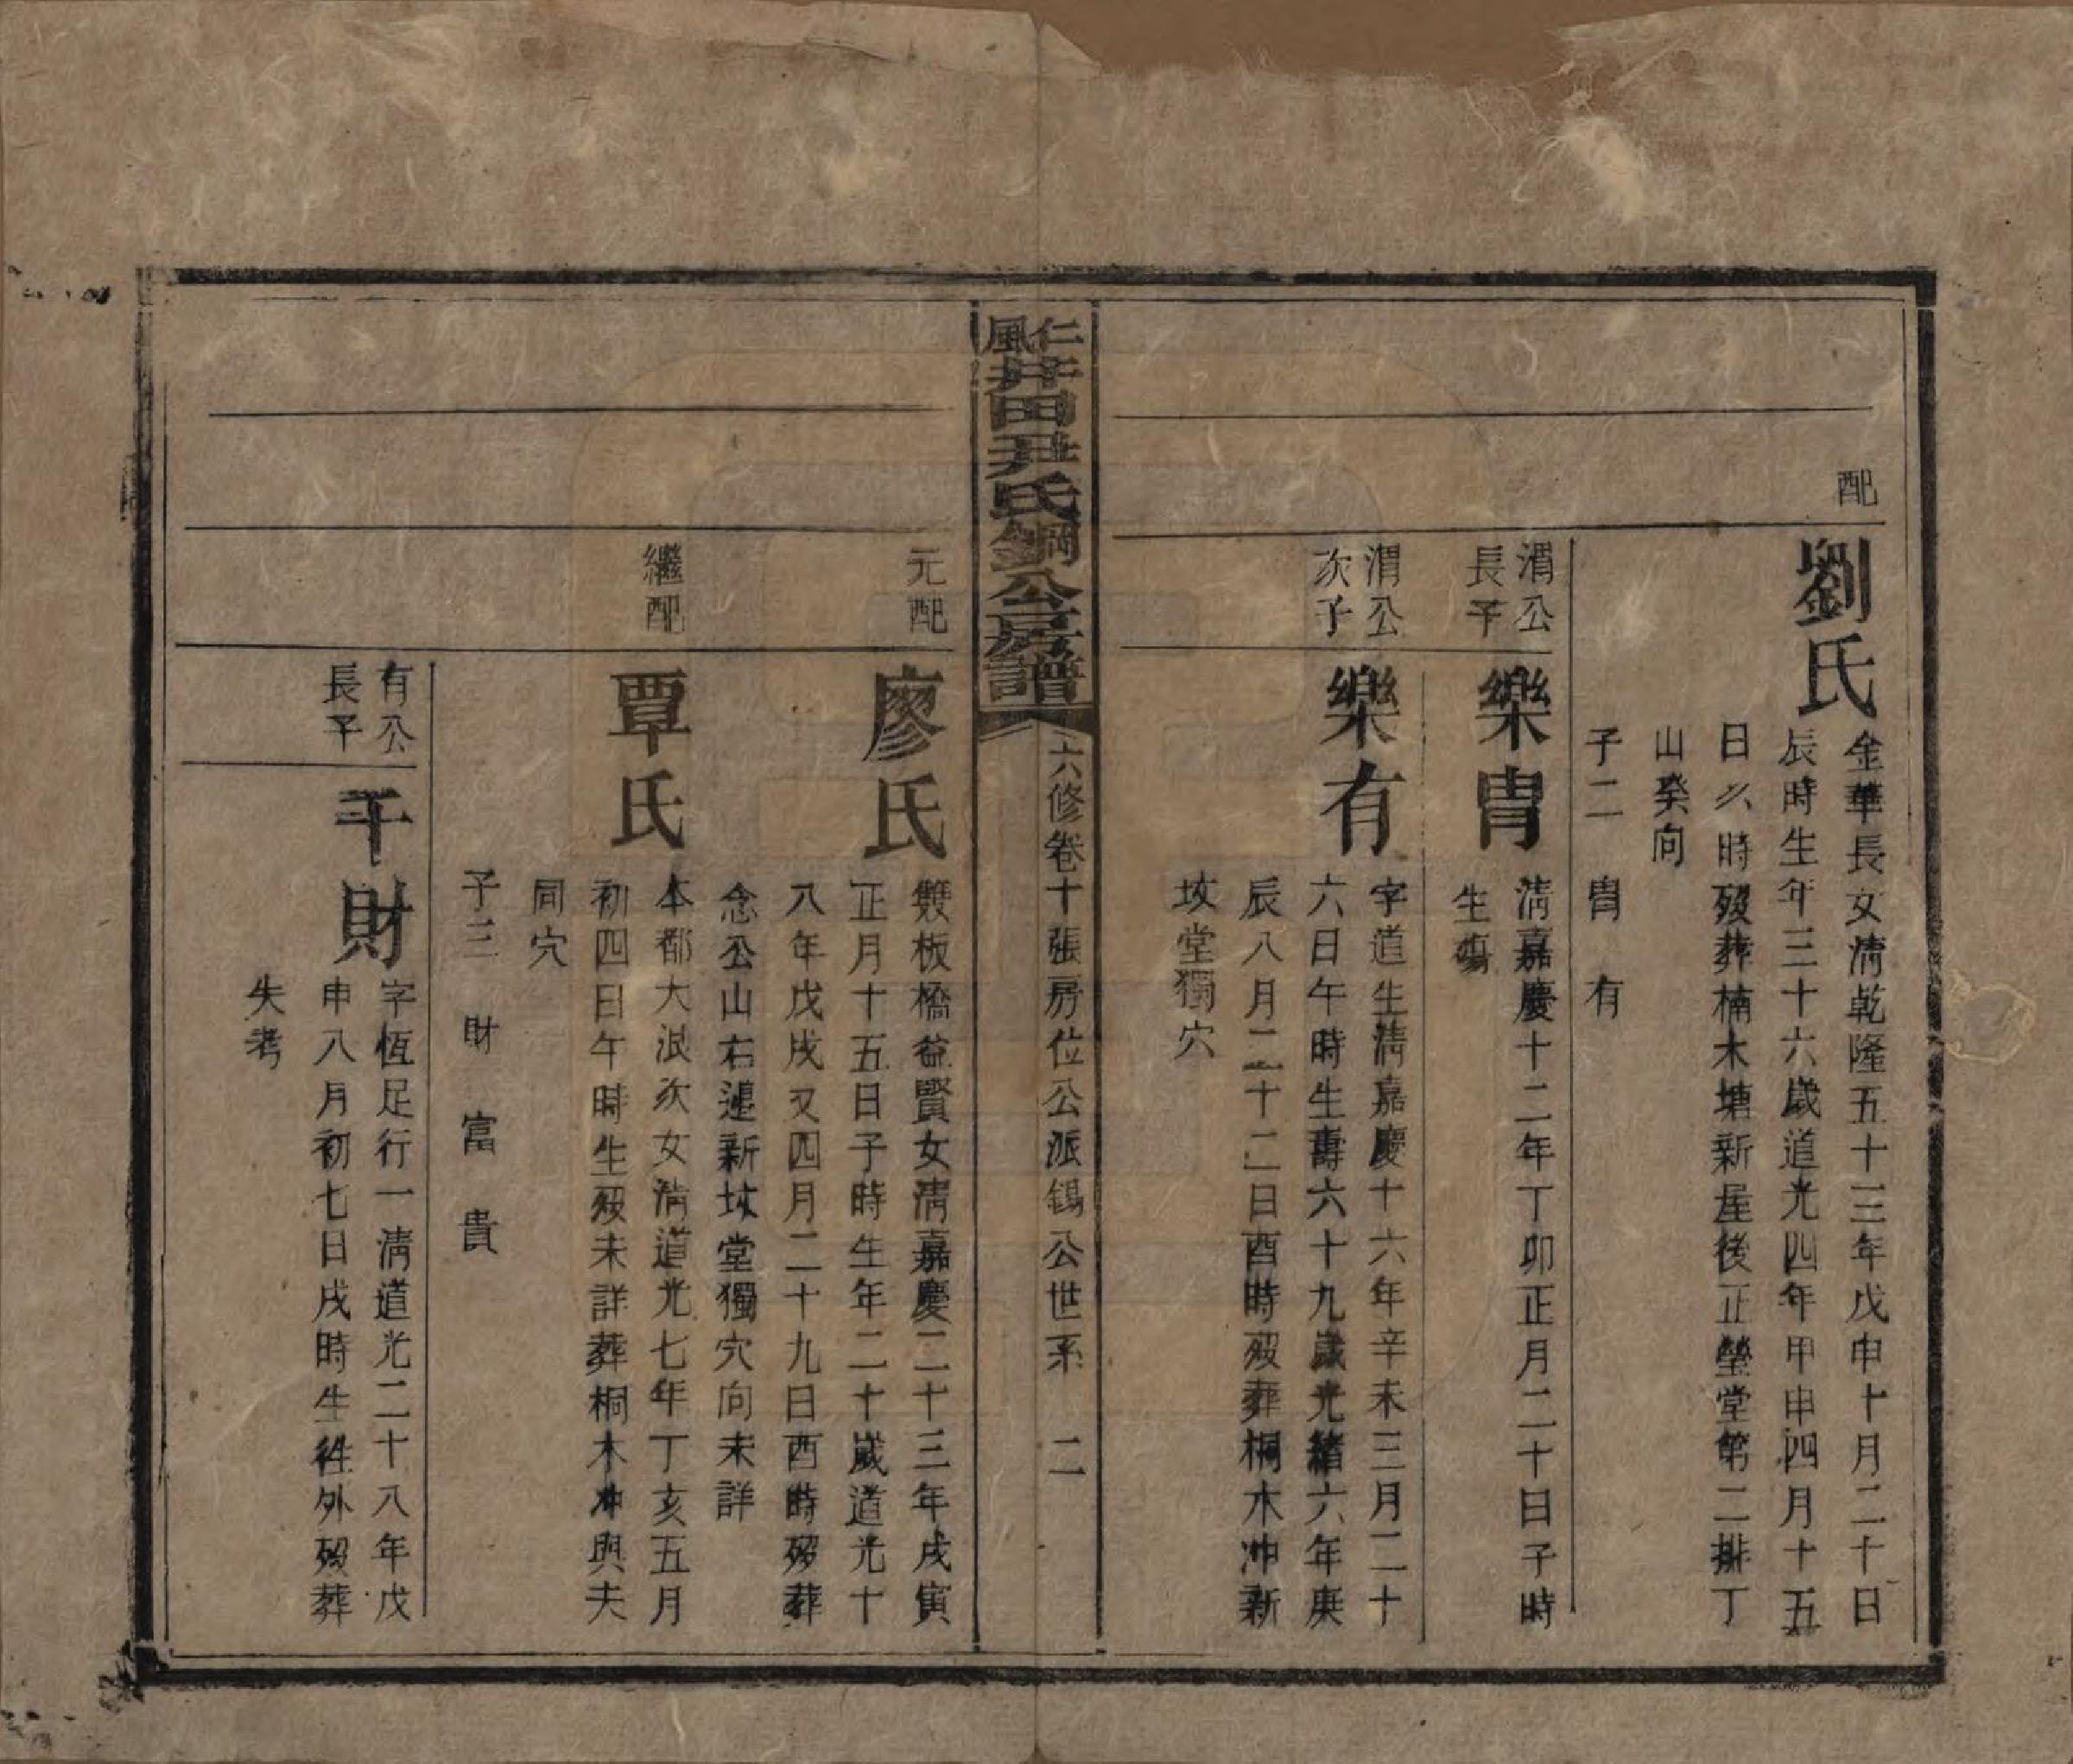 配
劉氏
金華長女清乾隆五十三年戊申十月二十日
辰時生年三十六歲道光四年甲申四月十五
日亥時歿葬楠木塘新屋後正塋堂第二排丁
山癸向
子二 冑 有
渭公
長子
樂冑
清嘉慶十二年丁卯正月二十日子時
生殤
渭公
次子
樂有
字道生清嘉慶十六年辛未三月二十
六日午時生壽六十九歲光緒六年庚
辰八月二十二日酉時歿葬桐木冲新
坟堂獨穴
仁風井田尹氏鋼公房譜
六修卷十張房位公派錫公世系 二
元配
廖氏
雙板橋益賢女清嘉慶二十三年戊寅
正月十五日子時生年二十歲道光十
八年戊戌又四月二十九日酉時歿葬
念公山右邊新坟堂獨穴向未詳
繼配
覃氏
本都大浪次女清道光七年丁亥五月
初四日午時生歿未詳葬桐木冲與夫
同穴
子三 財 富 貴
有公
長子
干財
字恆足行一清道光二十八年戊
申八月初七日戌時生往外歿葬
失考